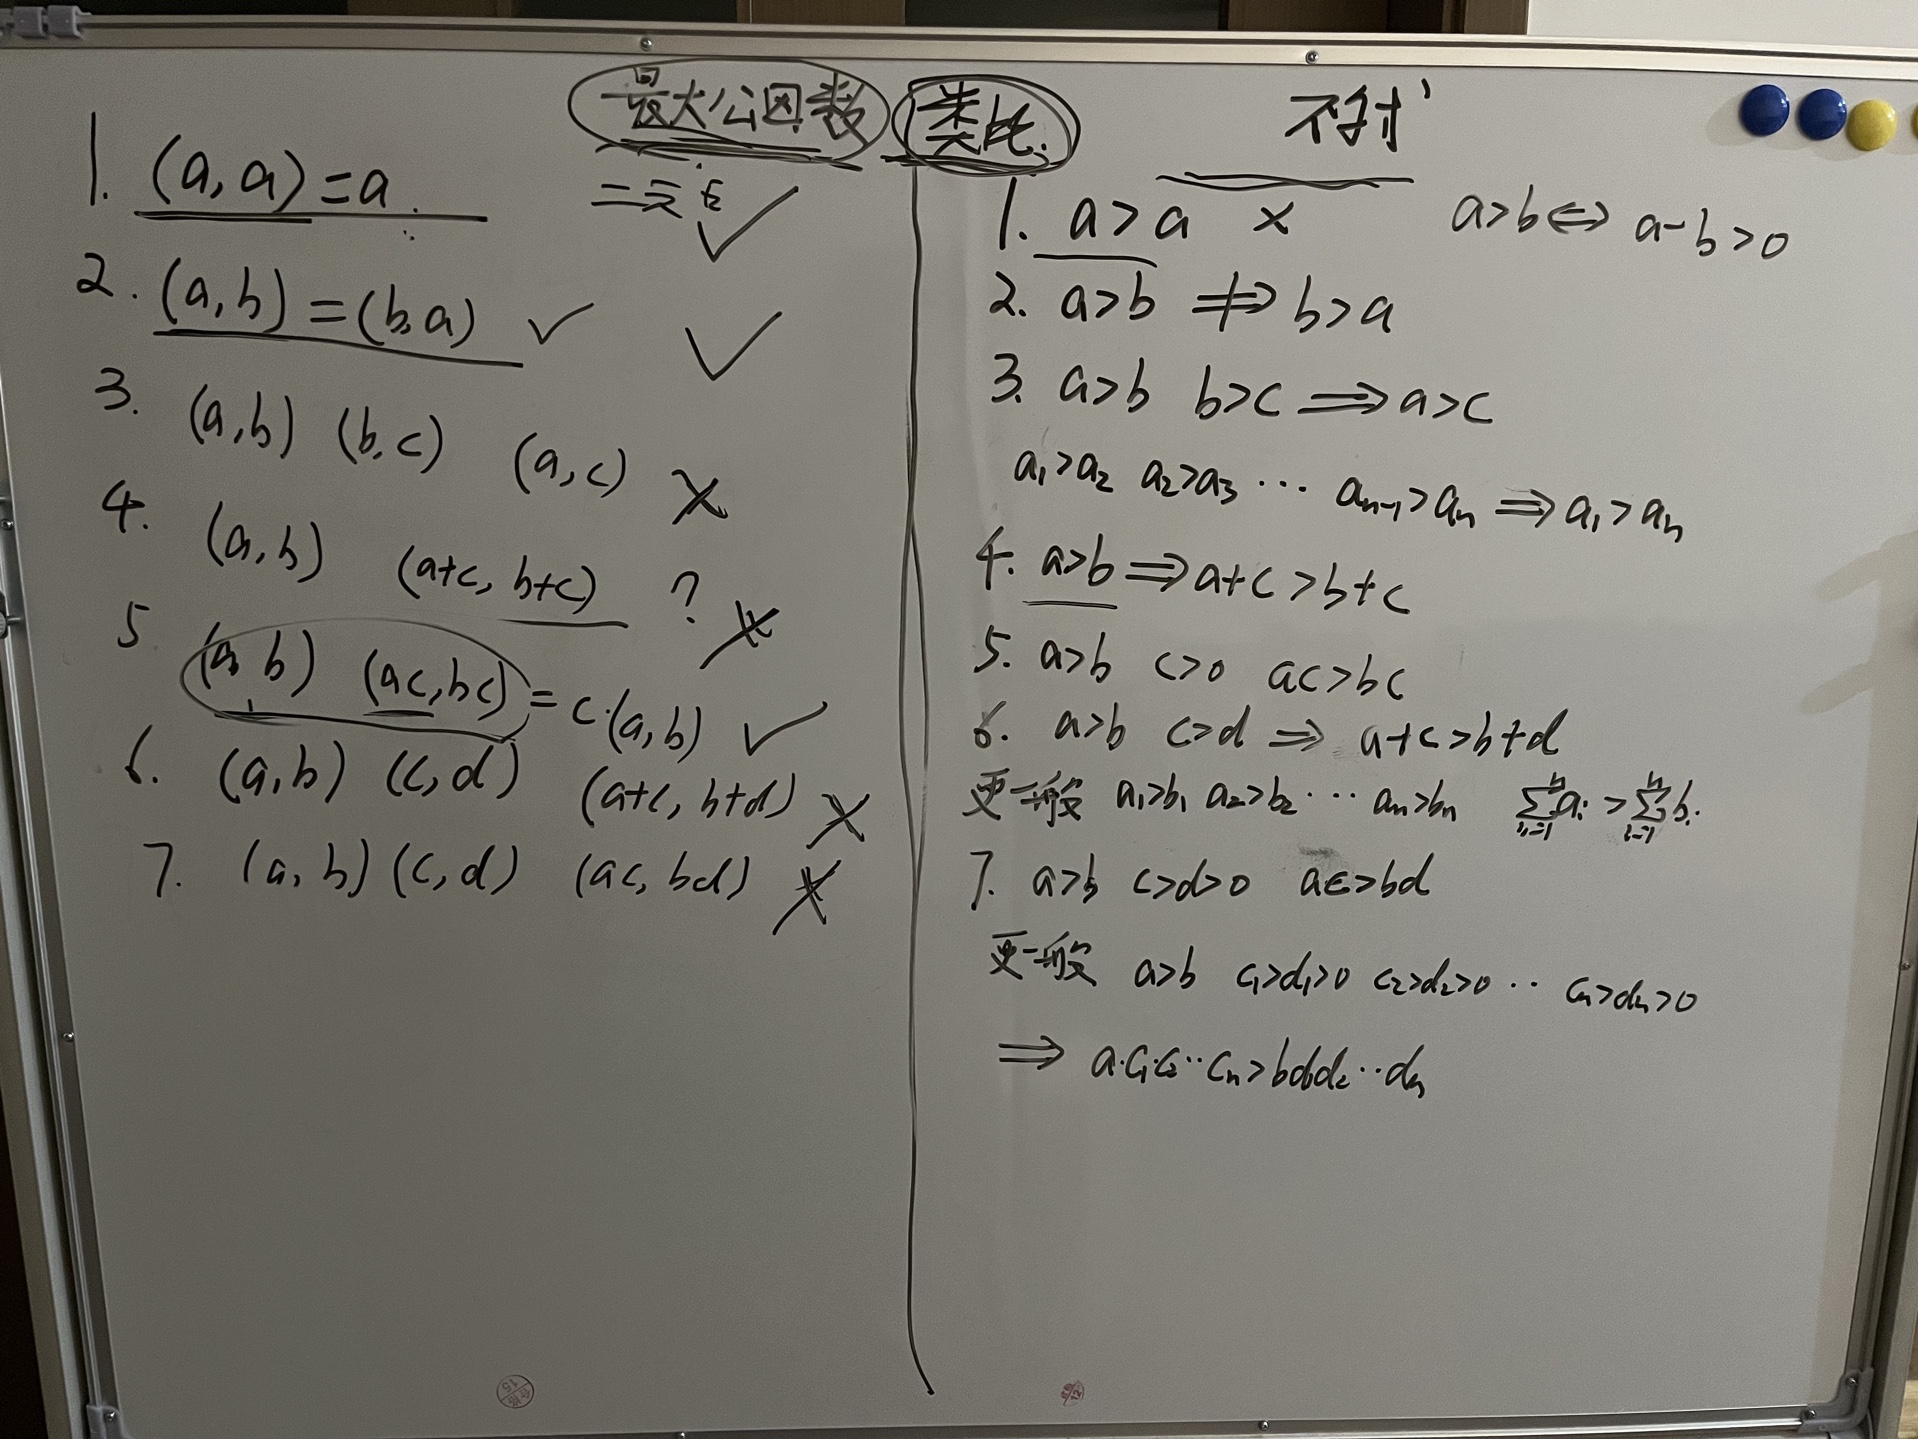 最大公因数 类比
二元
1. (a,a)=a.
2. (a,b)=(b,a) ✓ ✓
3. (a,b) (b,c) (a,c) ×
4. (a,b) (a+c, b+c) ? ×
5 (a,b) (ac,bc)=c·(a,b) ✓
6. (a,b) (c,d) (a+c, b+d) ×
7. (a,b) (c,d) (ac, bd) ×
1. a>a × a>b⇔a-b>0
2. a>b ⇏ b>a
3. a>b b>c ⟹ a>c
a₁>a₂ a₂>a₃ ··· aₙ₋₁>aₙ ⟹ a₁>aₙ
4. a>b ⟹ a+c>b+c
5. a>b c>0 ac>bc
6. a>b c>d ⟹ a+c>b+d
更一般 a₁>b₁ a₂>b₂ ··· aₙ>bₙ ∑ⁿᵢ₌₁aᵢ > ∑ⁿᵢ₌₁bᵢ
7. a>b c>d>0 ac>bd
更一般 a>b c₁>d₁>0 c₂>d₂>0 ·· cₙ>dₙ>0
⟹ a·c₁·c₂··cₙ>bd₁d₂··dₙ